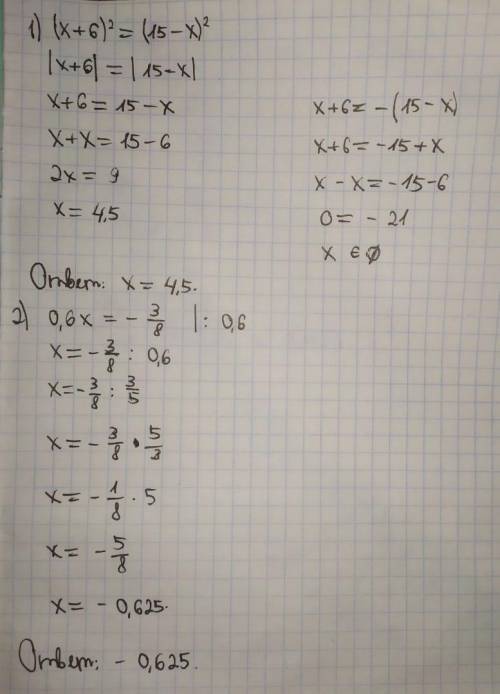 1) (x+6)² = (15-x)²
|x+6| = |15-x|
x+6 = 15-x
x+x = 15-6
2x = 9
x = 4,5
x+6 = -(15-x)
x+6 = -15+x
x-x = -15-6
0 = -21
x ∈ ∅
Ответ: x = 4,5.
2) 0,6x = -3/8 |: 0,6
x = -3/8 : 0,6
x = -3/8 : 3/5
x = -3/8 · 5/3
x = -1/8 · 5
x = -5/8
x = -0,625.
Ответ: -0,625.